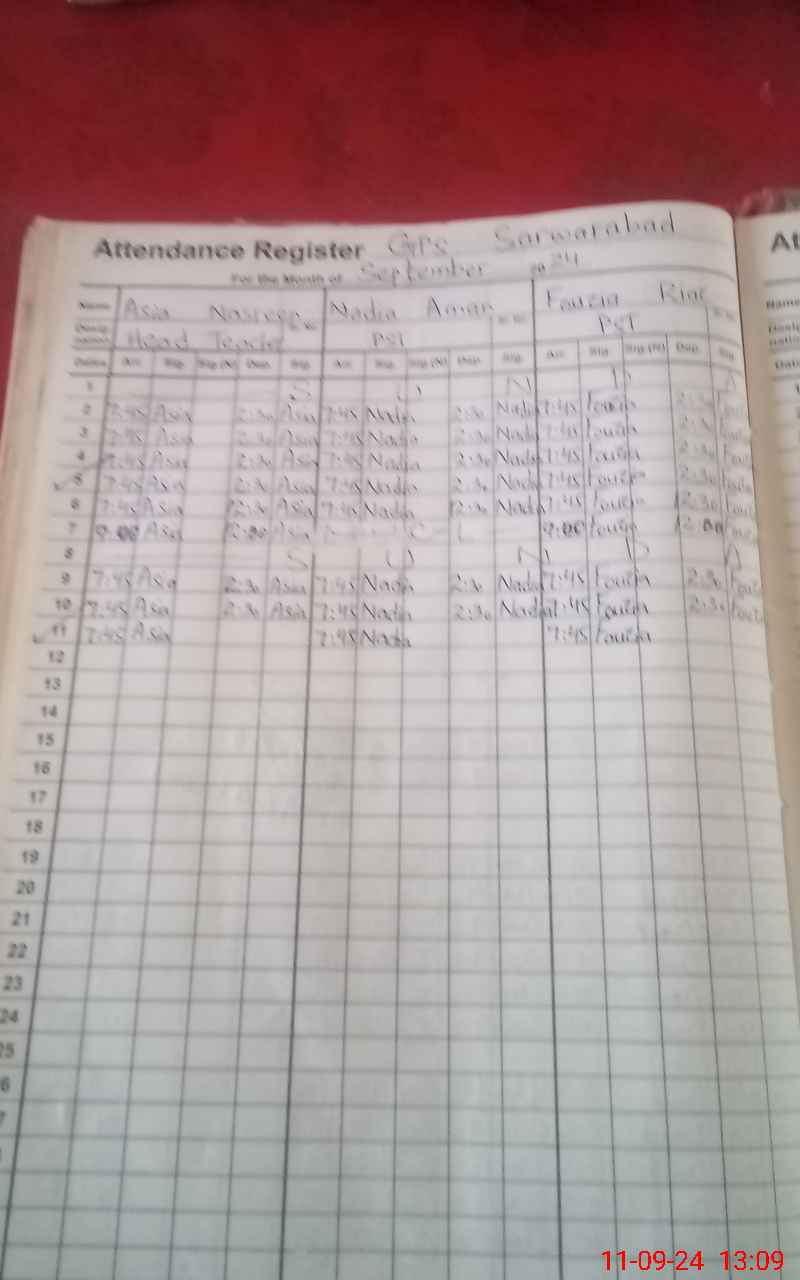 Attendance Register GPS Sarwarabad At
For the Month of September 2024
Name Asia Nasreen Nadia Aman Fouzia Riaz Name
Head Teacher PST PST
Dates Arr. Sig. Sig (N) Dep. Sig. Arr. Sig. Sig (N) Dep. Sig. Arr. Sig. Sig (N) Dep. Sig
1 S U N D A
2 7:45 Asia 2:30 Asia 7:45 Nadia 2:30 Nadia 7:45 Fouzia 2:30
3 7:45 Asia 2:30 Asia 7:45 Nadia 2:30 Nadia 7:45 Fouzia 2:30
4 7:45 Asia 2:30 Asia 7:45 Nadia 2:30 Nadia 7:45 Fouzia 2:30
5 7:45 Asia 2:30 Asia 7:45 Nadia 2:30 Nadia 7:45 Fouzia 2:30
6 7:45 Asia 12:30 Asia 7:45 Nadia 12:30 Nadia 7:45 Fouzia 12:30
7 9:00 Asia 12:00 Asia C L 9:00 Fouzia 12:00
8 S U N D A
9 7:45 Asia 2:30 Asia 7:45 Nadia 2:30 Nadia 7:45 Fouzia 2:30
10 7:45 Asia 2:30 Asia 7:45 Nadia 2:30 Nadia 7:45 Fouzia 2:30
11 7:45 Asia 7:45 Nadia 7:45 Fouzia
12
13
14
15
16
17
18
19
20
21
22
23
24
25
6
7
11-09-24 13:09